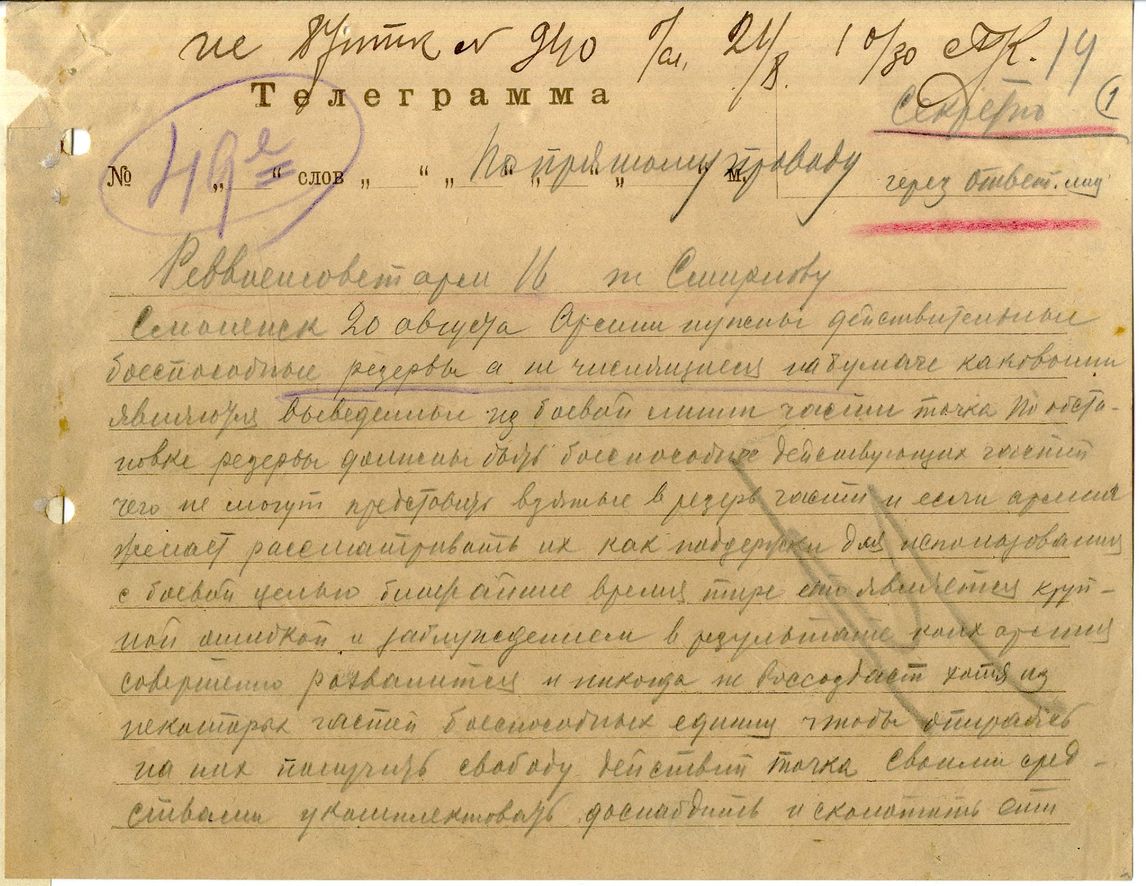 не 940 24/8 10/30
14
Телеграмма
Секретно
1
49
№ „ “ слов „ “ „ “ „ “ „ “ м.
По прямому проводу
через ответ. лиц
Реввоенсовет арм 16 т Смирнову
Смоленск 20 августа Армии нужны действительные
боеспособные резервы а не числящиеся на бумаге каковыми
являются выведенные из боевой линии части точка По обста-
новке резервы должны быть боеспособнее действующих частей
чего не могут представить взятые в резерв части и если армия
желает рассматривать их как поддержки для использования
с боевой целью ближайшее время тире это является круп-
ной ошибкой и заблуждением в результате коих армия
совершенно развалится и никогда не воссоздаст хотя из
некоторых частей боеспособных единиц чтобы опираясь
на них получить свободу действий точка Своими сред-
ствами укомплектовать доснабдить и сколотить эти